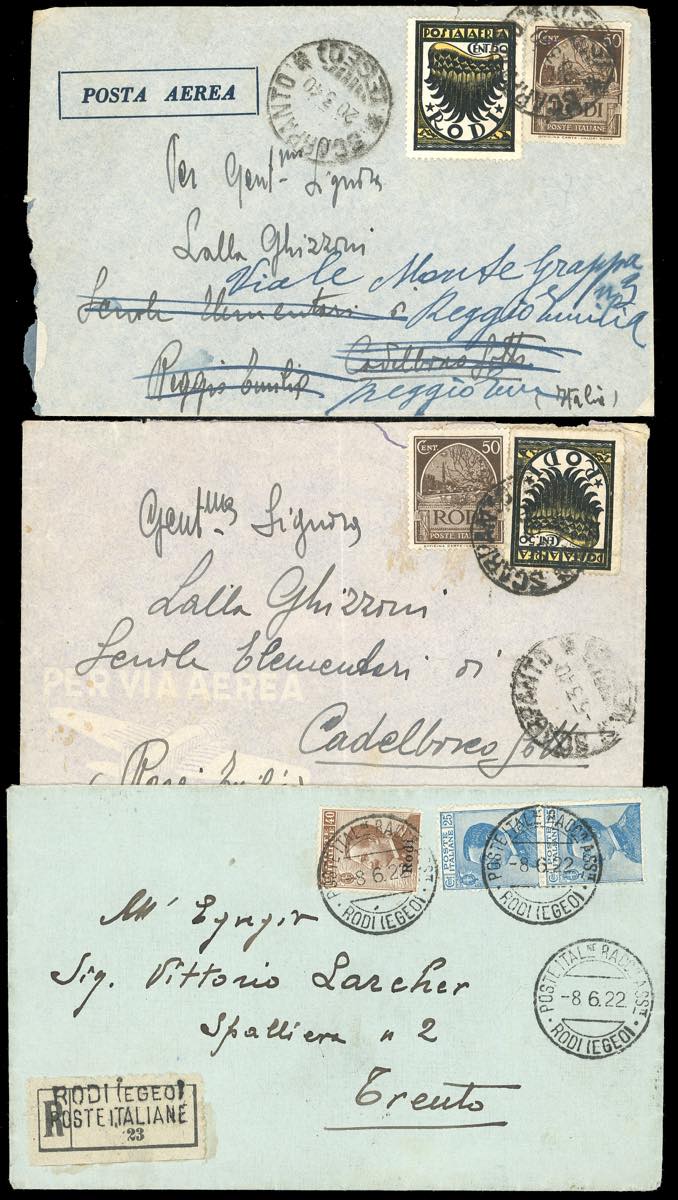 POSTA AEREA
SCARPANTO (EGEO)
20.3.40
POSTA AEREA
CENT. 50
RODI
50
RODI
POSTE ITALIANE
Per Gent.ma Signora
Lalla Ghizzoni
Viale Monte Grappa
n 3
Scuole Elementari di Reggio Emilia
Cadelbosco Sotto
Reggio Emilia
(Italia)
CENT. 50
RODI
POSTE ITALIANE
POSTA AEREA
CENT. 50
RODI
SCARPANTO
Gent.ma Signora
Lalla Ghizzoni
Scuole Elementari di
PER VIA AEREA
Cadelbosco Sotto
SCARPANTO
-5.3.40
40
Rodi
POSTE ITALIANE
25
POSTE ITAL.NE RACC. ASS.
-8 6.22
RODI (EGEO)
POSTE ITAL.NE RACC. ASS.
-8 6.22
RODI (EGEO)
All'
Sig. Vittorio Larcher
POSTE ITAL.NE RACC. ASS.
-8 6.22
RODI (EGEO)
Spalliera n 2
Trento
R
RODI (EGEO)
POSTE ITALIANE
23